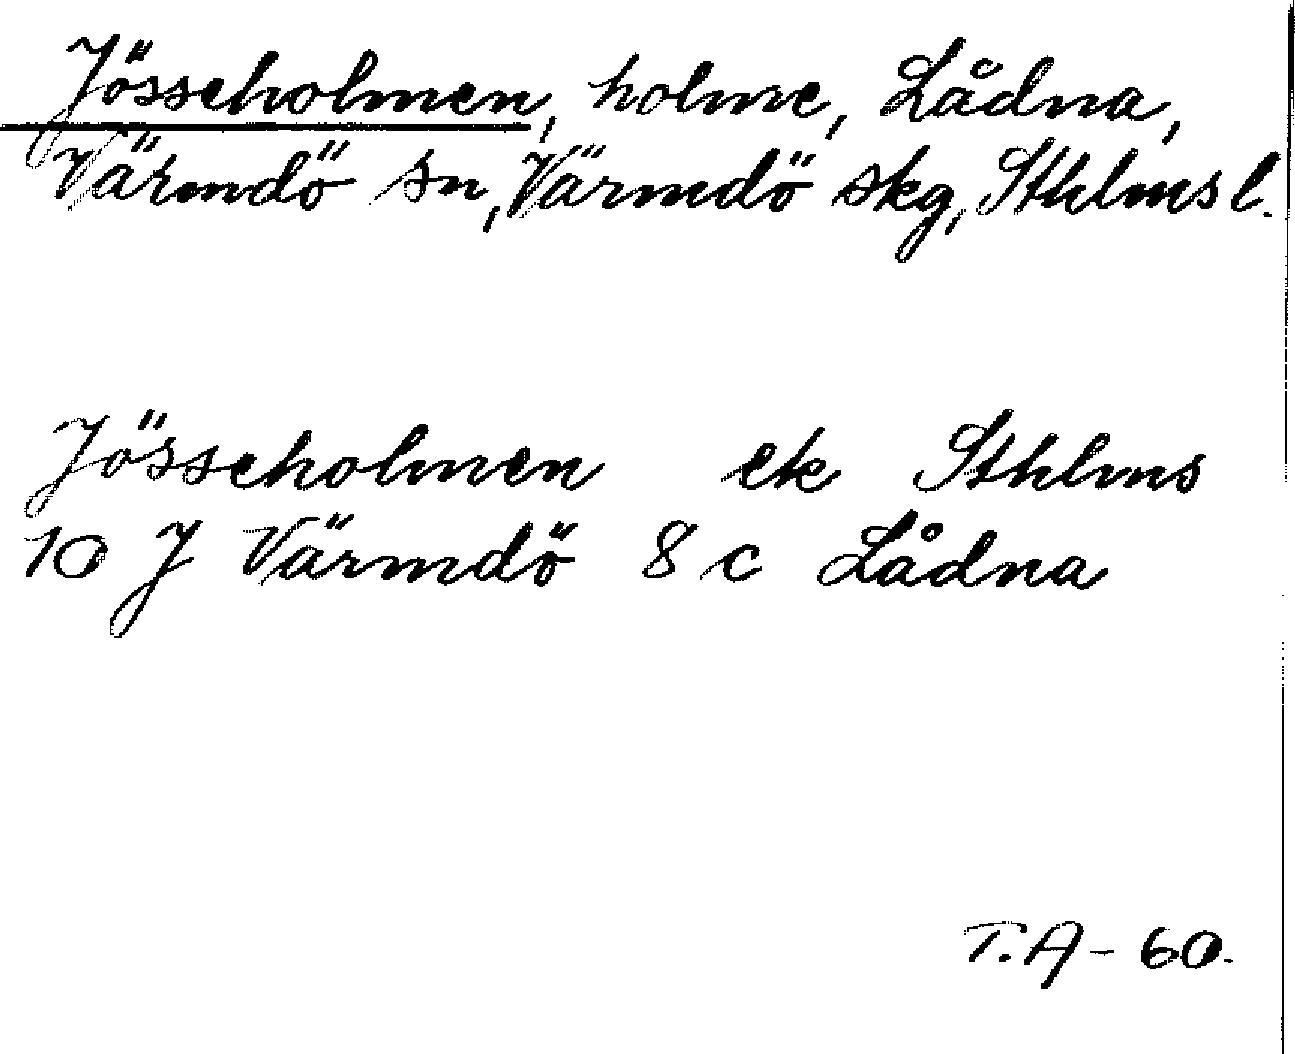 Jösseholmen, holme, Lådna,
Värmdö sn, Värmdö skg, Sthlms l.
Jösseholmen ek Sthlms
10 J Värmdö 8 c Lådna
T.A - 60.